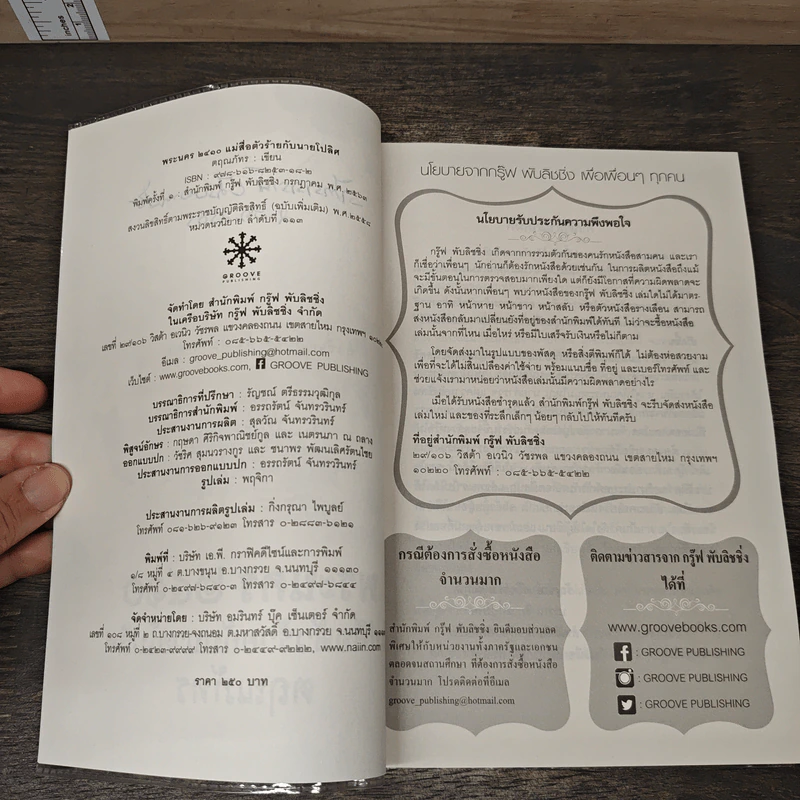 inches
1
2
พระนคร ๒๔๑๐ แม่สื่อตัวร้ายกับนายโปลิศ
ตฤณภัทร : เขียน
ISBN : ๙๗๘-๖๑๖-๘๒๕๓-๑๘-๒
พิมพ์ครั้งที่ ๑ สำนักพิมพ์ กรู๊ฟ พับลิชชิ่ง กรกฎาคม พ.ศ.๒๕๖๑
สงวนลิขสิทธิ์ตามพระราชบัญญัติลิขสิทธิ์ (ฉบับเพิ่มเติม) พ.ศ.๒๕๕๘
หมวดนวนิยาย ลำดับที่ ๑๑๓
GROOVE
PUBLISHING
จัดทำโดย สำนักพิมพ์ กรู๊ฟ พับลิชชิ่ง
ในเครือบริษัท กรู๊ฟ พับลิชชิ่ง จำกัด
เลขที่ ๒๙/๑๐๖ วิสต้า อเวนิว วัชรพล แขวงคลองถนน เขตสายไหม กรุงเทพฯ ๑๐๒๒๐
โทรศัพท์ : ๐๘๕-๖๖๕-๕๔๒๒
อีเมล : groove_publishing@hotmail.com
เว็บไซต์ : www.groovebooks.com, GROOVE PUBLISHING
บรรณาธิการที่ปรึกษา : รัญชณ์ ตรีธรรมวุฒิกุล
บรรณาธิการสำนักพิมพ์ : อรรถรัตน์ จันทรวรินทร์
ประสานงานการผลิต : สุลวัณ จันทรวรินทร์
พิสูจน์อักษร : กฤษดา ศิริกิจพาณิชย์กูล และ เนตรนภา ณ ถลาง
ออกแบบปก : วัชริศ สุมนวรางกูร และ ชนาพร พัฒนเลิศรัตนไชย
ประสานงานการออกแบบปก : อรรถรัตน์ จันทรวรินทร์
รูปเล่ม : พฤจิกา
ประสานงานการผลิตรูปเล่ม : กิ่งกรุณา ไพบูลย์
โทรศัพท์ ๐๘๑-๖๒๖-๙๑๒๓ โทรสาร ๐-๒๘๘๓-๖๑๒๑
พิมพ์ที่ : บริษัท เอ.พี. กราฟิคดีไซน์และการพิมพ์
๑/๘ หมู่ที่ ๔ ต.บางขนุน อ.บางกรวย จ.นนทบุรี ๑๑๑๓๐
โทรศัพท์ ๐-๒๔๙๗-๖๘๔๐-๓ โทรสาร ๐-๒๔๙๗-๖๘๔๔
จัดจำหน่ายโดย : บริษัท อมรินทร์ บุ๊ค เซ็นเตอร์ จำกัด
เลขที่ ๑๐๘ หมู่ที่ ๒ ถ.บางกรวย-จงถนอม ต.มหาสวัสดิ์ อ.บางกรวย จ.นนทบุรี
โทรศัพท์ ๐-๒๔๒๓-๙๙๙๙ โทรสาร ๐-๒๔๔๙-๙๒๒๒, www.naiin.com
ราคา ๒๕๐ บาท
นโยบายจากกรู๊ฟ พับลิชชิ่ง เพื่อเพื่อนๆ ทุกคน
นโยบายรับประกันความพึงพอใจ
กรู๊ฟ พับลิชชิ่ง เกิดจากการรวมตัวกันของคนรักหนังสือสามคน และเรา
ก็เชื่อว่าเพื่อนๆ นักอ่านก็ต้องรักหนังสือด้วยเช่นกัน ในการผลิตหนังสือถึงแม้
จะมีขั้นตอนในการตรวจสอบมากเพียงใด แต่ก็ยังมีโอกาสที่ความผิดพลาดจะ
เกิดขึ้น ดังนั้นหากเพื่อนๆ พบว่าหนังสือของกรู๊ฟ พับลิชชิ่ง เล่มใดไม่ได้มาตร-
ฐาน อาทิ หน้าหาย หน้าขาว หน้าสลับ หรือตัวหนังสือรางเลือน สามารถ
ส่งหนังสือกลับมาเปลี่ยนยังที่อยู่ของสำนักพิมพ์ได้ทันที ไม่ว่าจะซื้อหนังสือ
เล่มนั้นจากที่ไหน เมื่อไหร่ หรือมีใบเสร็จรับเงินหรือไม่ก็ตาม
โดยจัดส่งมาในรูปแบบของพัสดุ หรือสิ่งตีพิมพ์ก็ได้ ไม่ต้องห่อสวยงาม
เพื่อที่จะได้ไม่สิ้นเปลืองค่าใช้จ่าย พร้อมแนบชื่อ ที่อยู่ และเบอร์โทรศัพท์ และ
ช่วยแจ้งเรามาหน่อยว่าหนังสือเล่มนั้นมีความผิดพลาดอย่างไร
เมื่อได้รับหนังสือชำรุดแล้ว สำนักพิมพ์กรู๊ฟ พับลิชชิ่ง จะรีบจัดส่งหนังสือ
เล่มใหม่ และของที่ระลึกเล็กๆ น้อยๆ กลับไปให้ทันทีครับ
ที่อยู่สำนักพิมพ์ กรู๊ฟ พับลิชชิ่ง
๒๙/๑๐๖ วิสต้า อเวนิว วัชรพล แขวงคลองถนน เขตสายไหม กรุงเทพฯ
๑๐๒๒๐ โทรศัพท์ : ๐๘๕-๖๖๕-๕๔๒๒
กรณีต้องการสั่งซื้อหนังสือ
จำนวนมาก
สำนักพิมพ์ กรู๊ฟ พับลิชชิ่ง ยินดีมอบส่วนลด
พิเศษให้กับหน่วยงานทั้งภาครัฐและเอกชน
ตลอดจนสถานศึกษา ที่ต้องการสั่งซื้อหนังสือ
จำนวนมาก โปรดติดต่อที่อีเมล
groove_publishing@hotmail.com
ติดตามข่าวสารจาก กรู๊ฟ พับลิชชิ่ง
ได้ที่
www.groovebooks.com
: GROOVE PUBLISHING
: GROOVE PUBLISHING
: GROOVE PUBLISHING